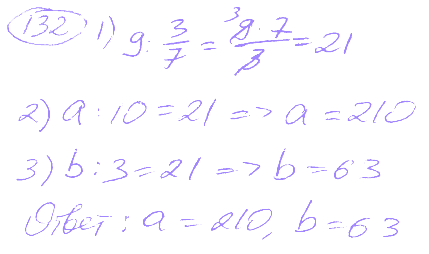 132 1) 9 : 3/7 = 9 · 7 / 3 = 21
2) a : 10 = 21 => a = 210
3) b : 3 = 21 => b = 63
Ответ: a = 210, b = 63